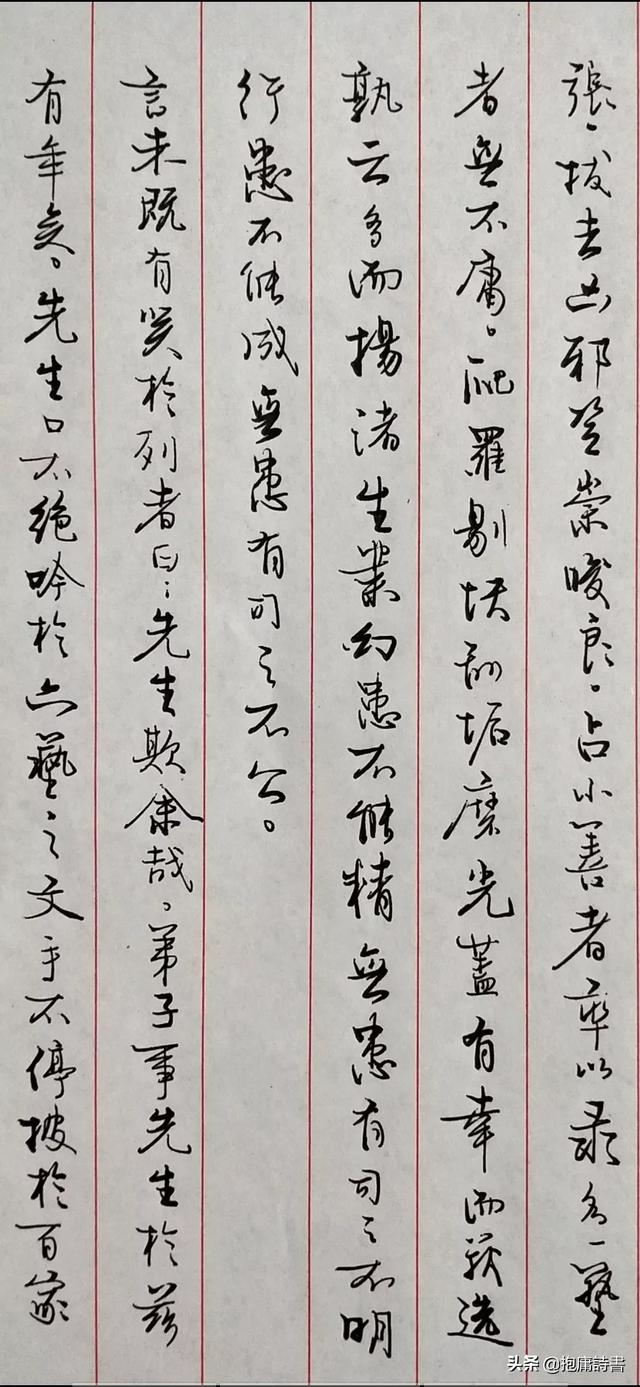 張、拔去凶邪登崇畯良。占小善者率以录名一藝
者無不庸。爬羅剔抉刮垢磨光蓋有幸而获选
孰云多而揚诸生業患不能精無患有司之不明
行患不能成無患有司之不公。
言未既有笑於列者曰:先生欺余哉。弟子事先生於兹
有年矣。先生口不绝吟於六藝之文手不停披於百家
头条 @抱庸詩書